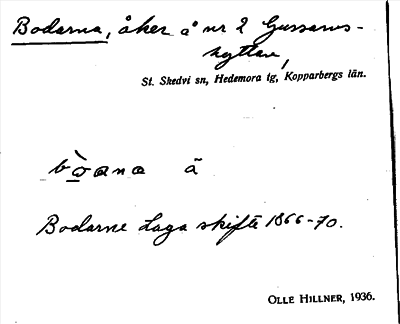 Bodarna, åker å nr 2 Gussarvs-
hyttan,
St. Skedvi sn, Hedemora tg, Kopparbergs län.
Bodarne Laga skifte 1866-70.
OLLE HILLNER, 1936.